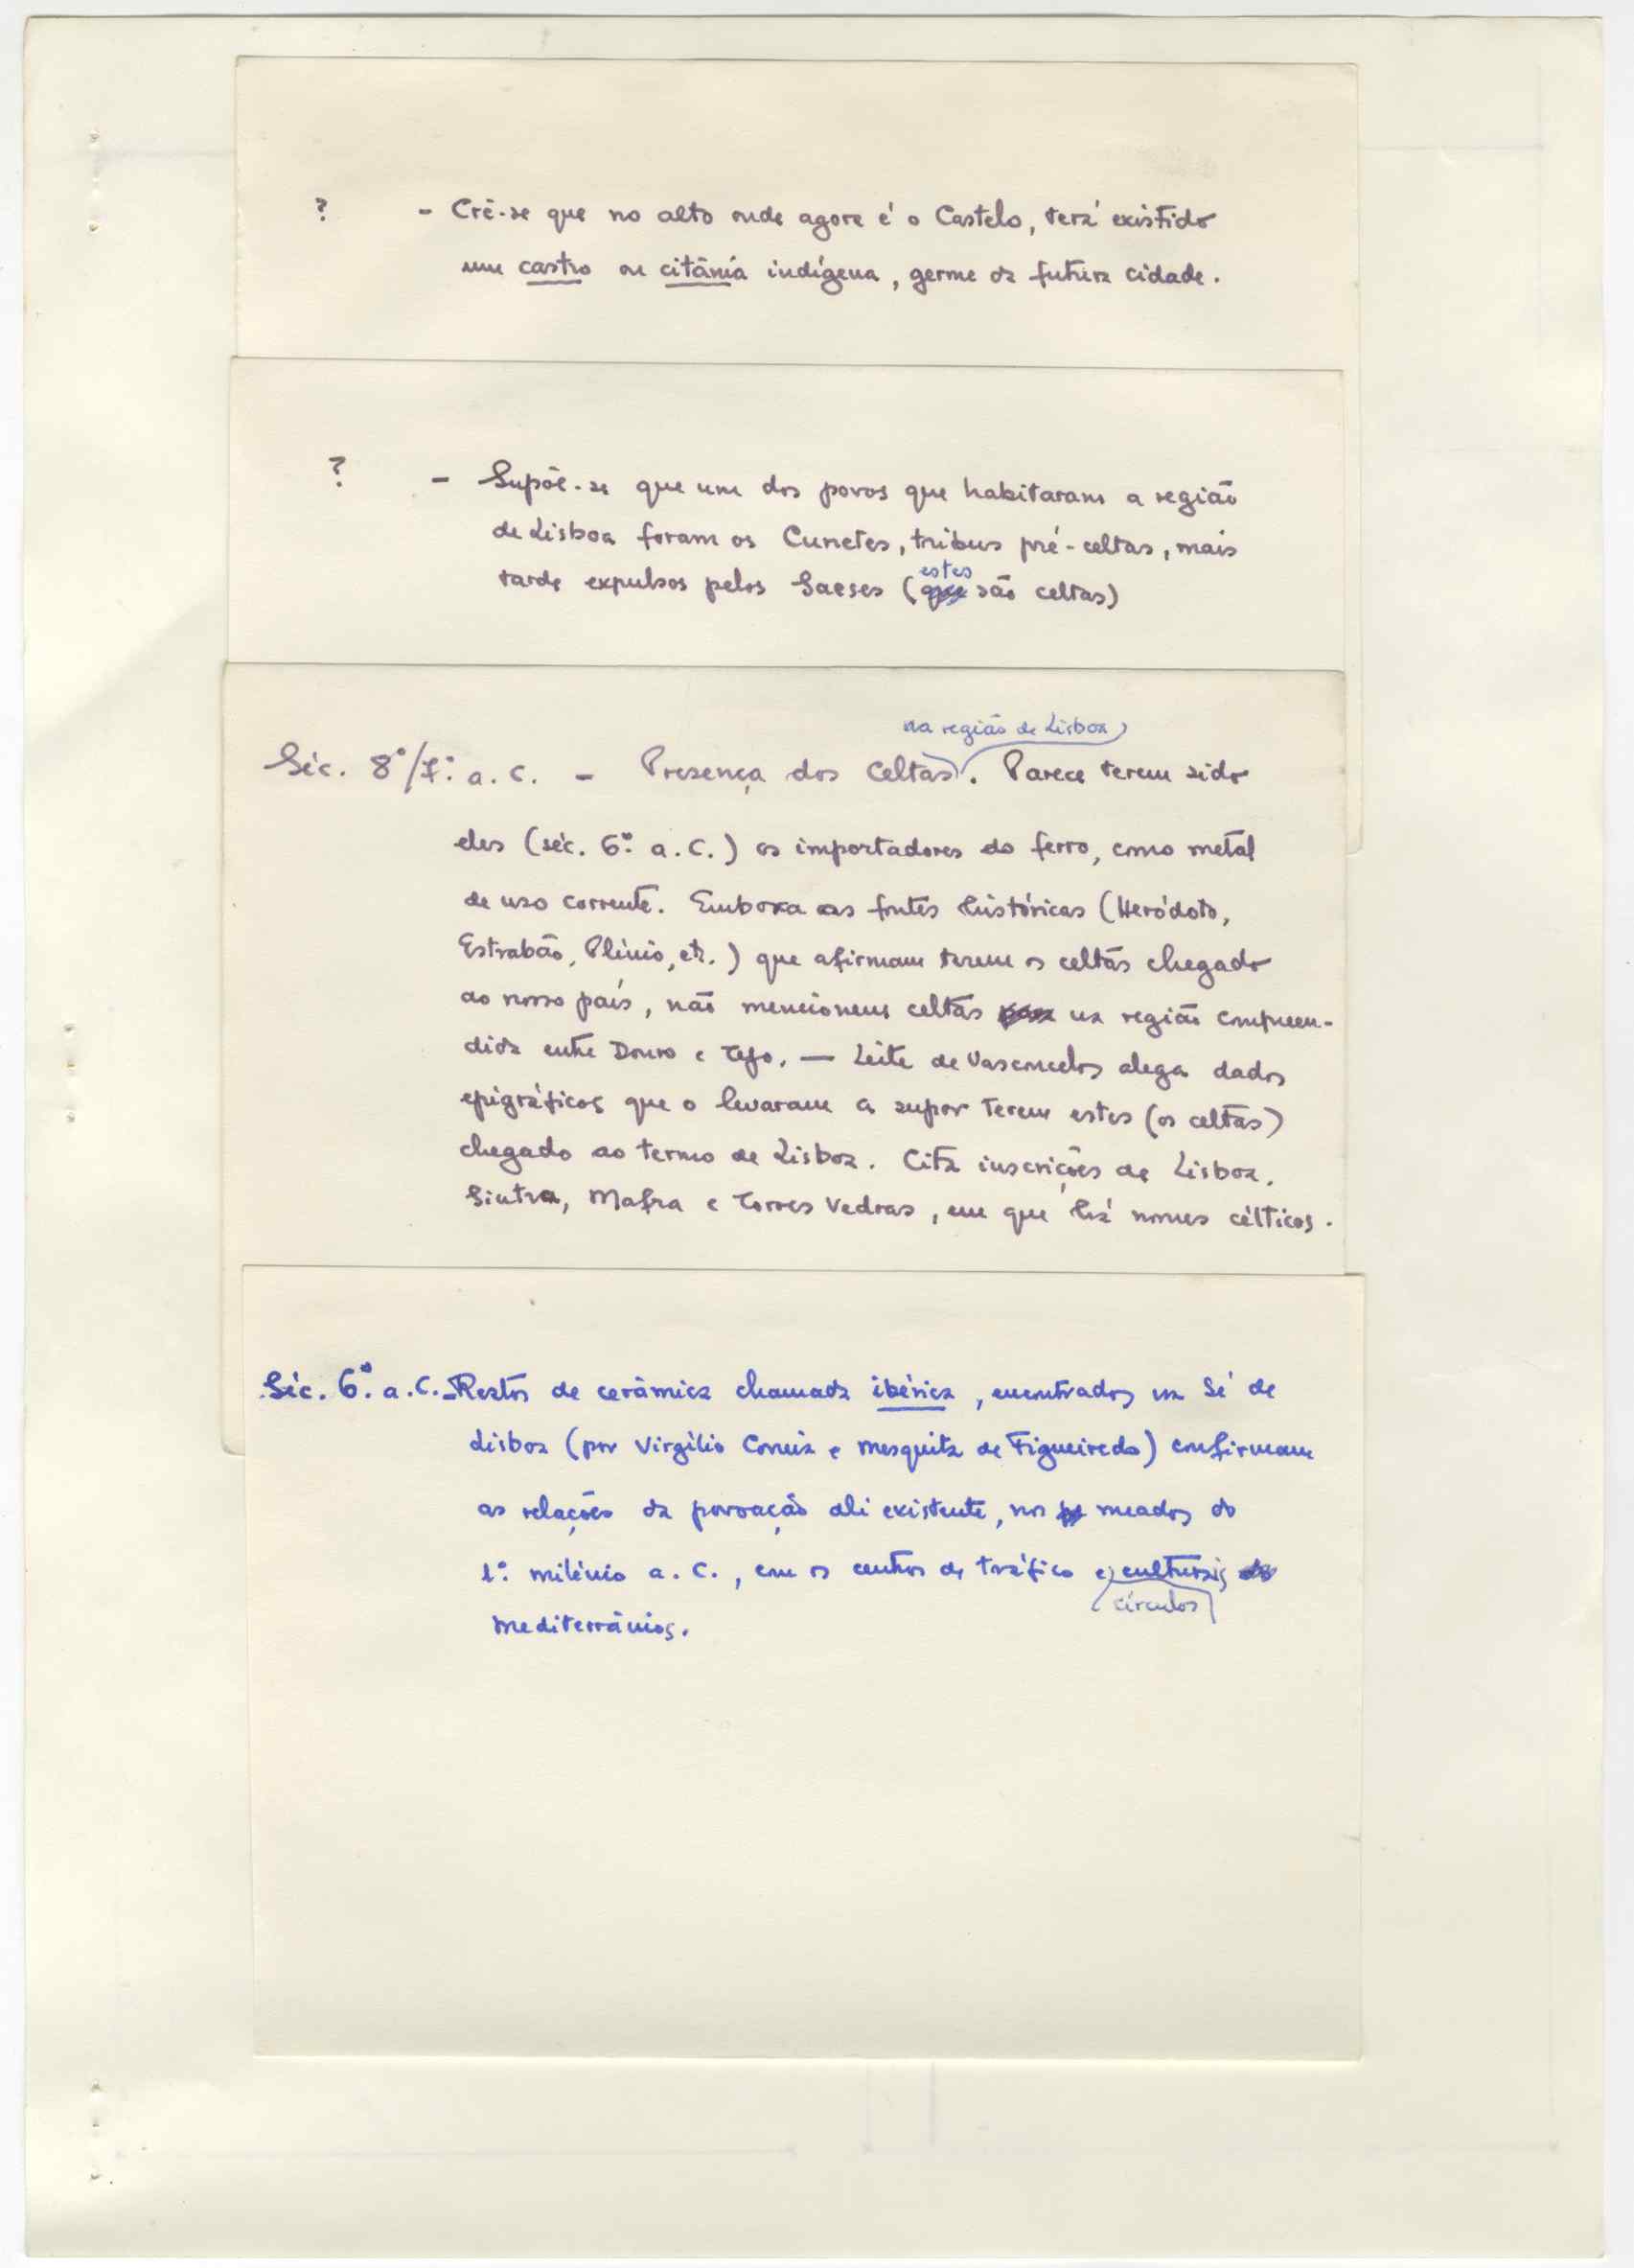 ? - Crê-se que no alto onde agora é o Castelo, terá existido
um castro ou citânia indígena, germe da futura cidade.
? - Supõe-se que um dos povos que habitaram a região
de Lisboa foram os Cunetes, tribus pré-celtas, mais
estes
tarde expulsos pelos Saeses (que são celtas)
na região de Lisboa
Séc. 8º/7º a. C. - Presença dos Celtas. Parece terem sido
eles (séc. 6º a. C.) os importadores do ferro, como metal
de uso corrente. Embora as fontes históricas (Heródoto,
Estrabão, Plínio, etc.) que afirmam terem os celtas chegado
ao nosso país, não mencionem celtas na região compreen-
dida entre Douro e Tejo. — Leite de Vasconcelos alega dados
epigráficos que o levaram a supor terem estes (os celtas)
chegado ao termo de Lisboa. Cita inscrições de Lisboa,
Sintra, Mafra e Torres Vedras, em que há nomes célticos.
Séc. 6º a. C. - Restos de cerâmica chamada ibérica, encontrados na Sé de
Lisboa (por Virgílio Correia e Mesquita de Figueiredo) confirmam
as relações da povoação ali existente, nos meados do
1º milénio a. C., com os centros de tráfico e culturais
círculos
mediterrânios.